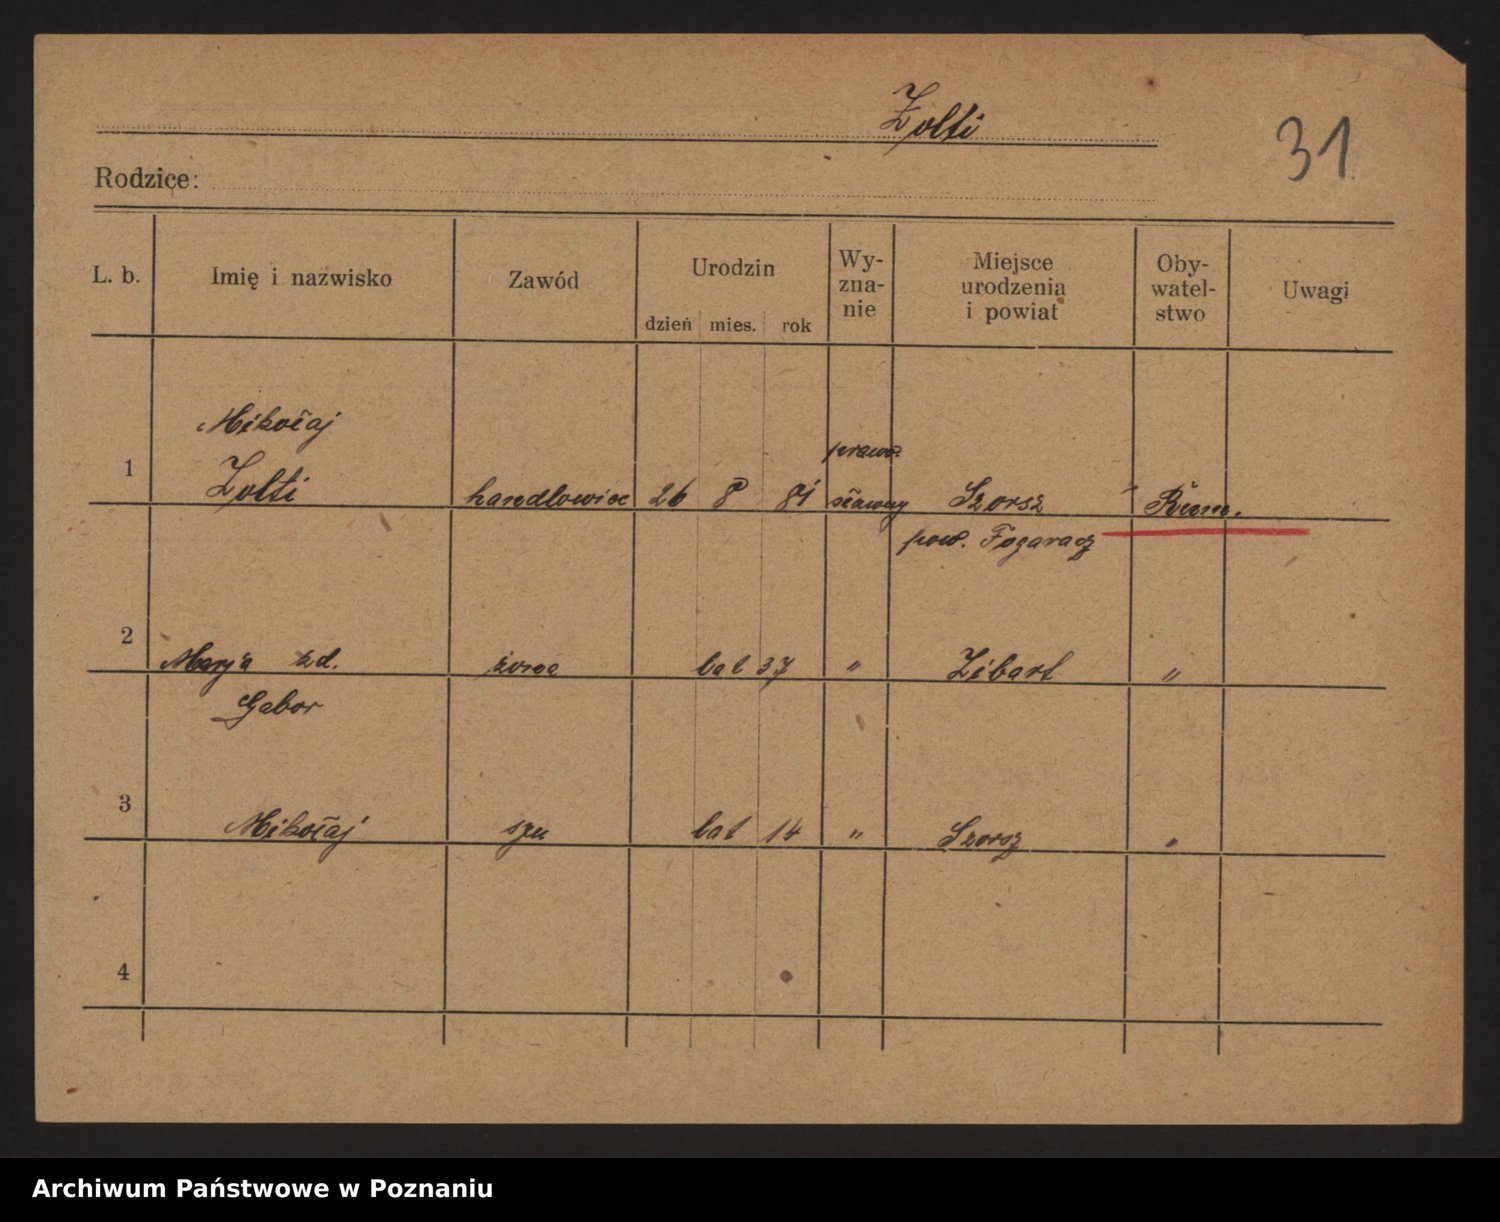 Zolti
31
Rodzice:
L. b. Imię i nazwisko Zawód Urodzin Wy-zna-nie Miejsce urodzenia i powiat Oby-watel-stwo Uwagi
dzień mies. rok
Mikołaj
1 Zolti handlowiec 26 8 81 prawo.sławny Szorsz Rum.
pow. Fogaracz
2 Marja zd. żona lat 37 " Zibart "
Gabor
3 Mikołaj syn lat 14 " Szorsz "
4
Archiwum Państwowe w Poznaniu